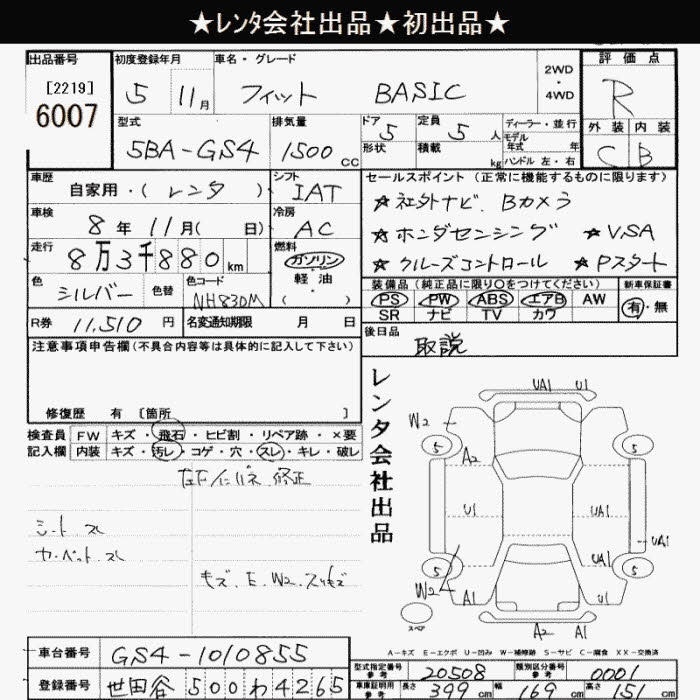 ★ﾚﾝﾀ会社出品★初出品★
出品番号 初度登録年月 車名・グレード 2WD・4WD 評価点
[2219] 6007 5 11月 フィット BASIC R
型式 排気量 ドア 定員 ディーラー・並行 外装 内装
5BA-GS4 1500cc 5 5人 モデル年式 年 C B
形状 積載 kg ハンドル 左・右
車歴 シフト セールスポイント (正常に機能するものに限ります)
自家用・(レンタ) IAT ★社外ナビ、Bカメラ
車検 8年11月(日) 冷房 AC ★ホンダセンシング ★VSA
走行 8万3千880km 燃料 ガソリン・軽油・( ) ★クルーズコントロール ★Pスタート
色 シルバー 色替 色コード NH830M 装備品 (純正品に限り○をつけてください) 新車保証書
PS PW ABS エアB AW 有・無
SR ナビ TV カワ
R券 11,510円 名変通知期限 月 日 後日品
取説
注意事項申告欄(不具合内容等は具体的に記入して下さい)
修復歴 有 [箇所 ]
検査員 FW キズ・飛石・ヒビ割・リペア跡・×要
記入欄 内装 キズ・汚レ・コゲ・穴・スレ・キレ・破レ
修正
シート スレ
キズ、E、W2、
レンタ会社出品
UA1 U1
W2
5 5
A2
U1 UA1
UA1
UA1
5 5
W2 A1 U1
A2 A1
スペア
A-キズ E-エクボ U-凹み W-補修跡 S-サビ C-腐食 XX-交換済
車台番号 GS4-1010855
型式指定番号 参考 20508 類別区分番号 参考 0001
登録番号 世田谷 500 わ 4265
車庫証明用 参考 長さ 399cm 幅 169cm 高さ 151cm